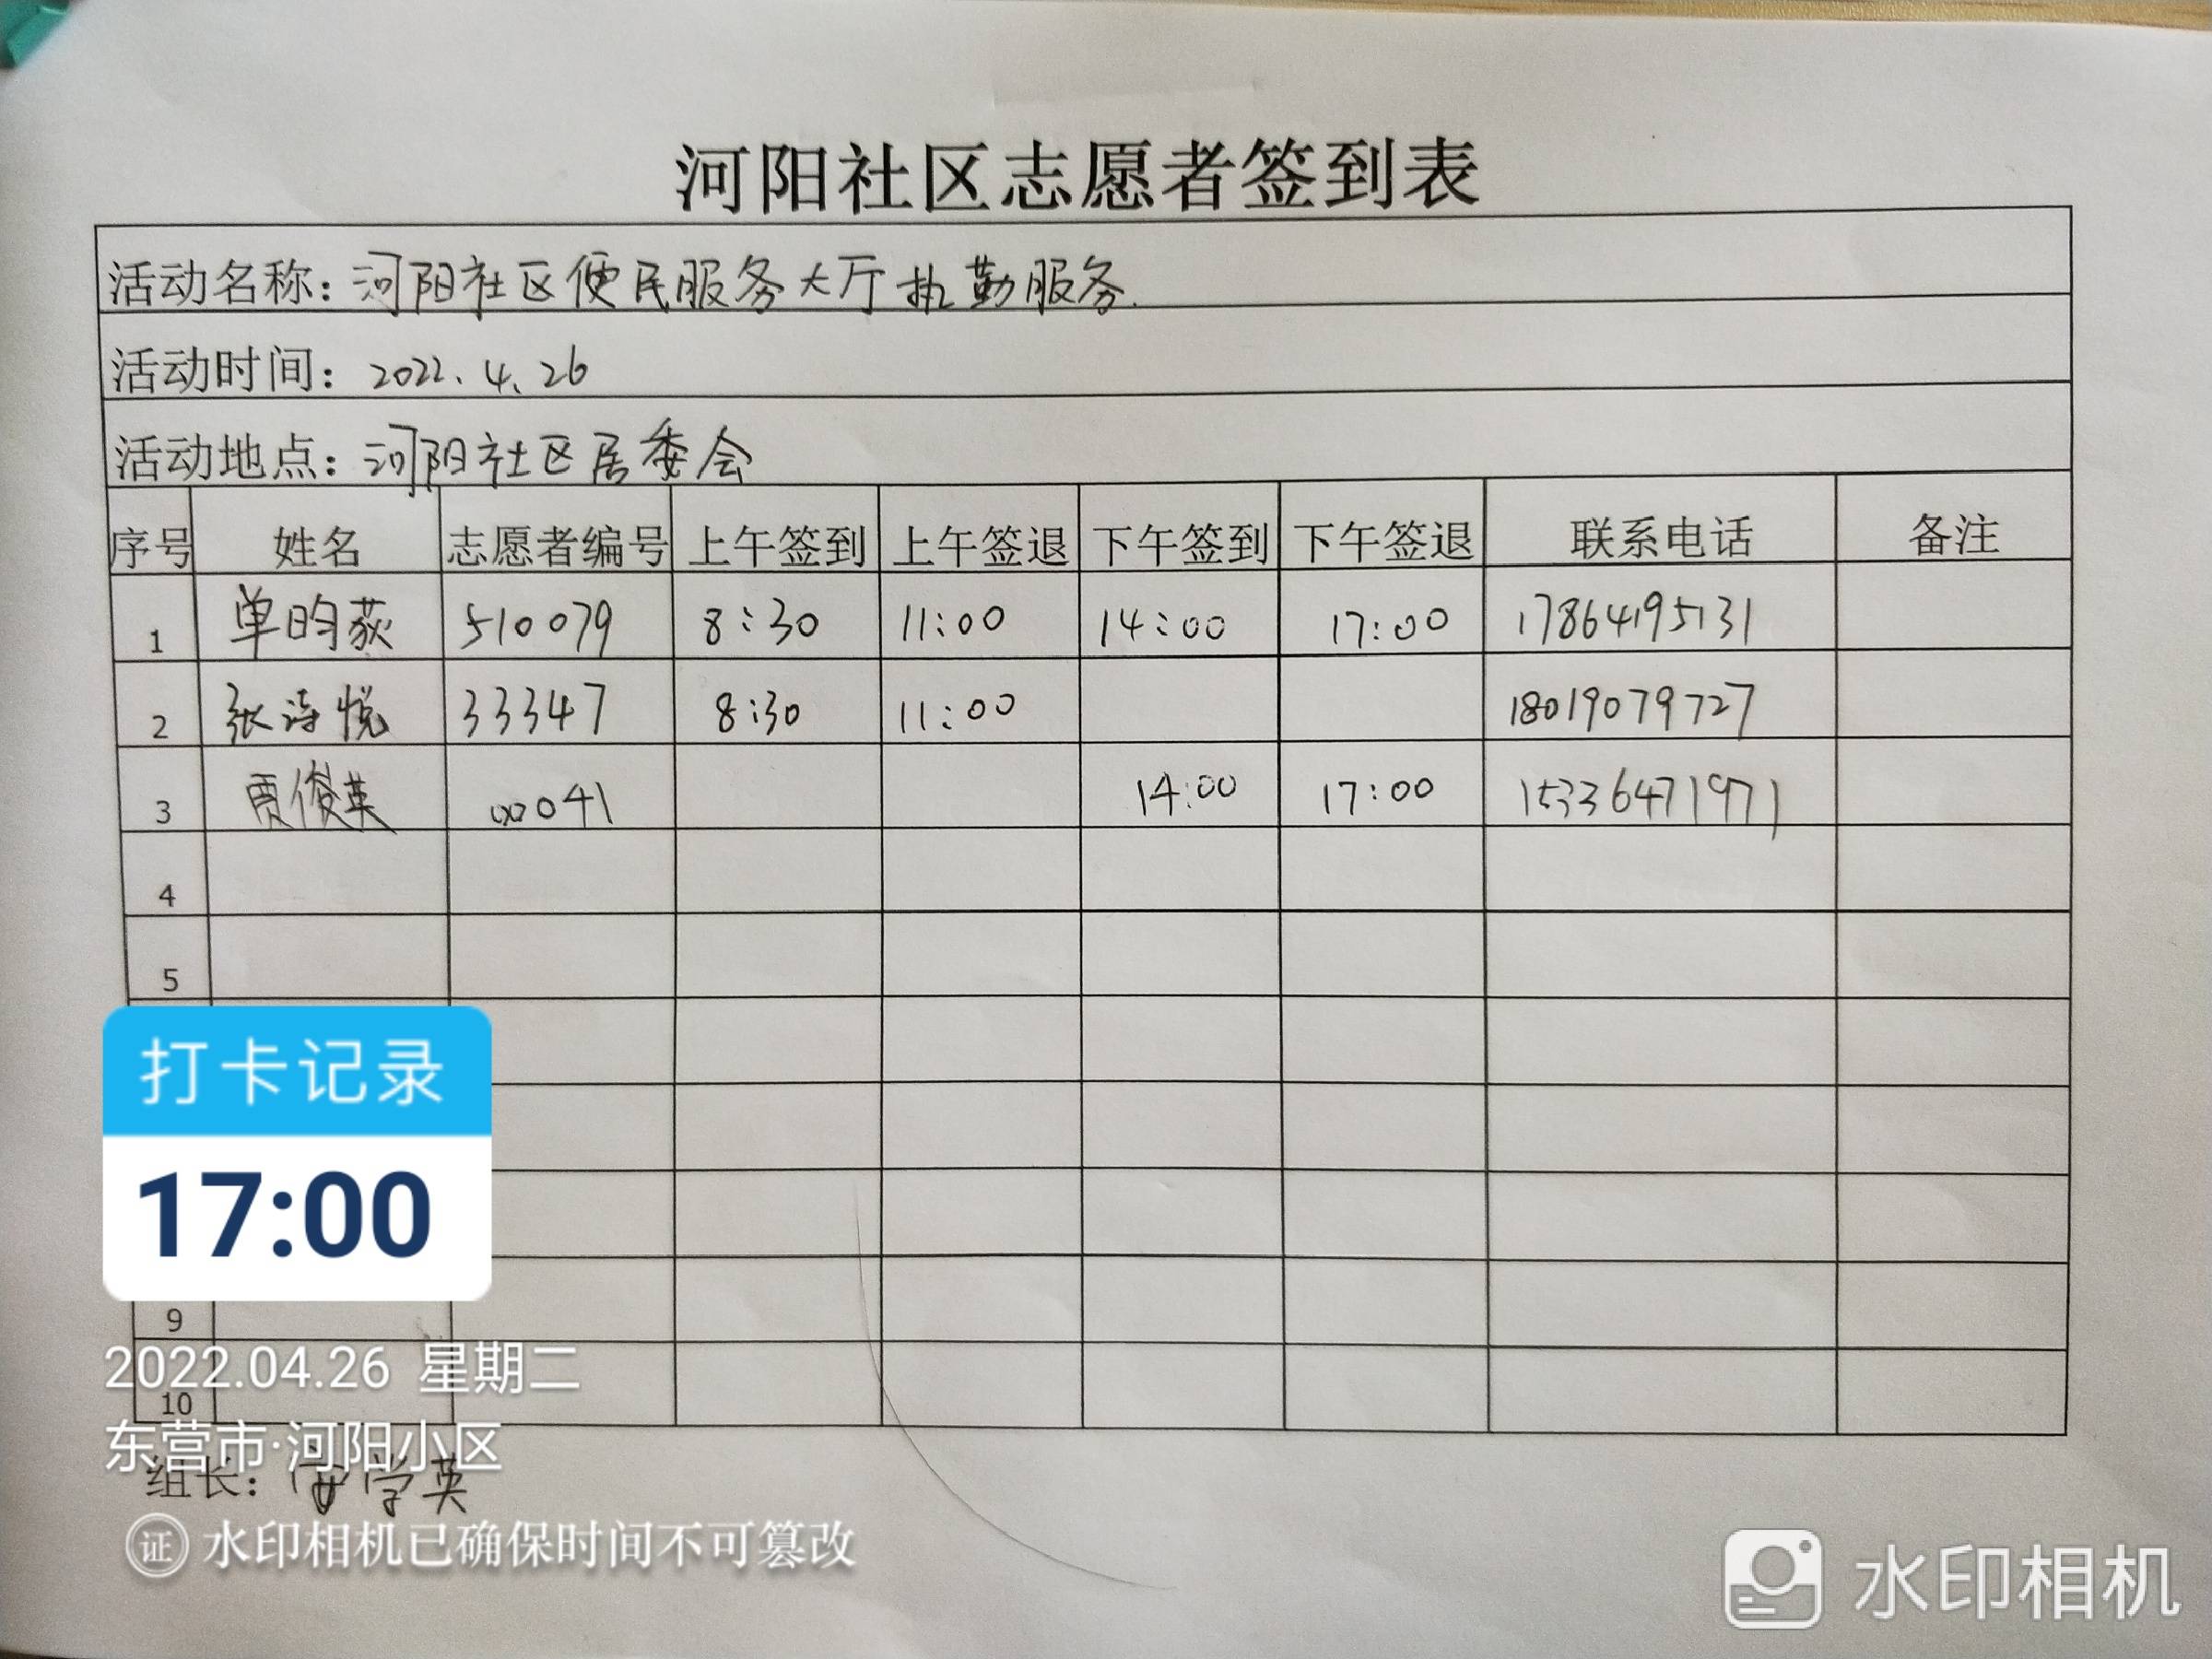 河阳社区志愿者签到表
活动名称：河阳社区便民服务大厅执勤服务.
活动时间：2022.4.26
活动地点：河阳社区居委会
序号 姓名 志愿者编号 上午签到 上午签退 下午签到 下午签退 联系电话 备注
1 单昀荻 510079 8:30 11:00 14:00 17:00 17864195131
2 张诗悦 33347 8:30 11:00 18019079727
3 贾俊英 00041 14:00 17:00 15336471971
4
5
打卡记录
17:00
9
2022.04.26 星期二
10
东营市·河阳小区
组长：安学英
证 水印相机已确保时间不可篡改
水印相机